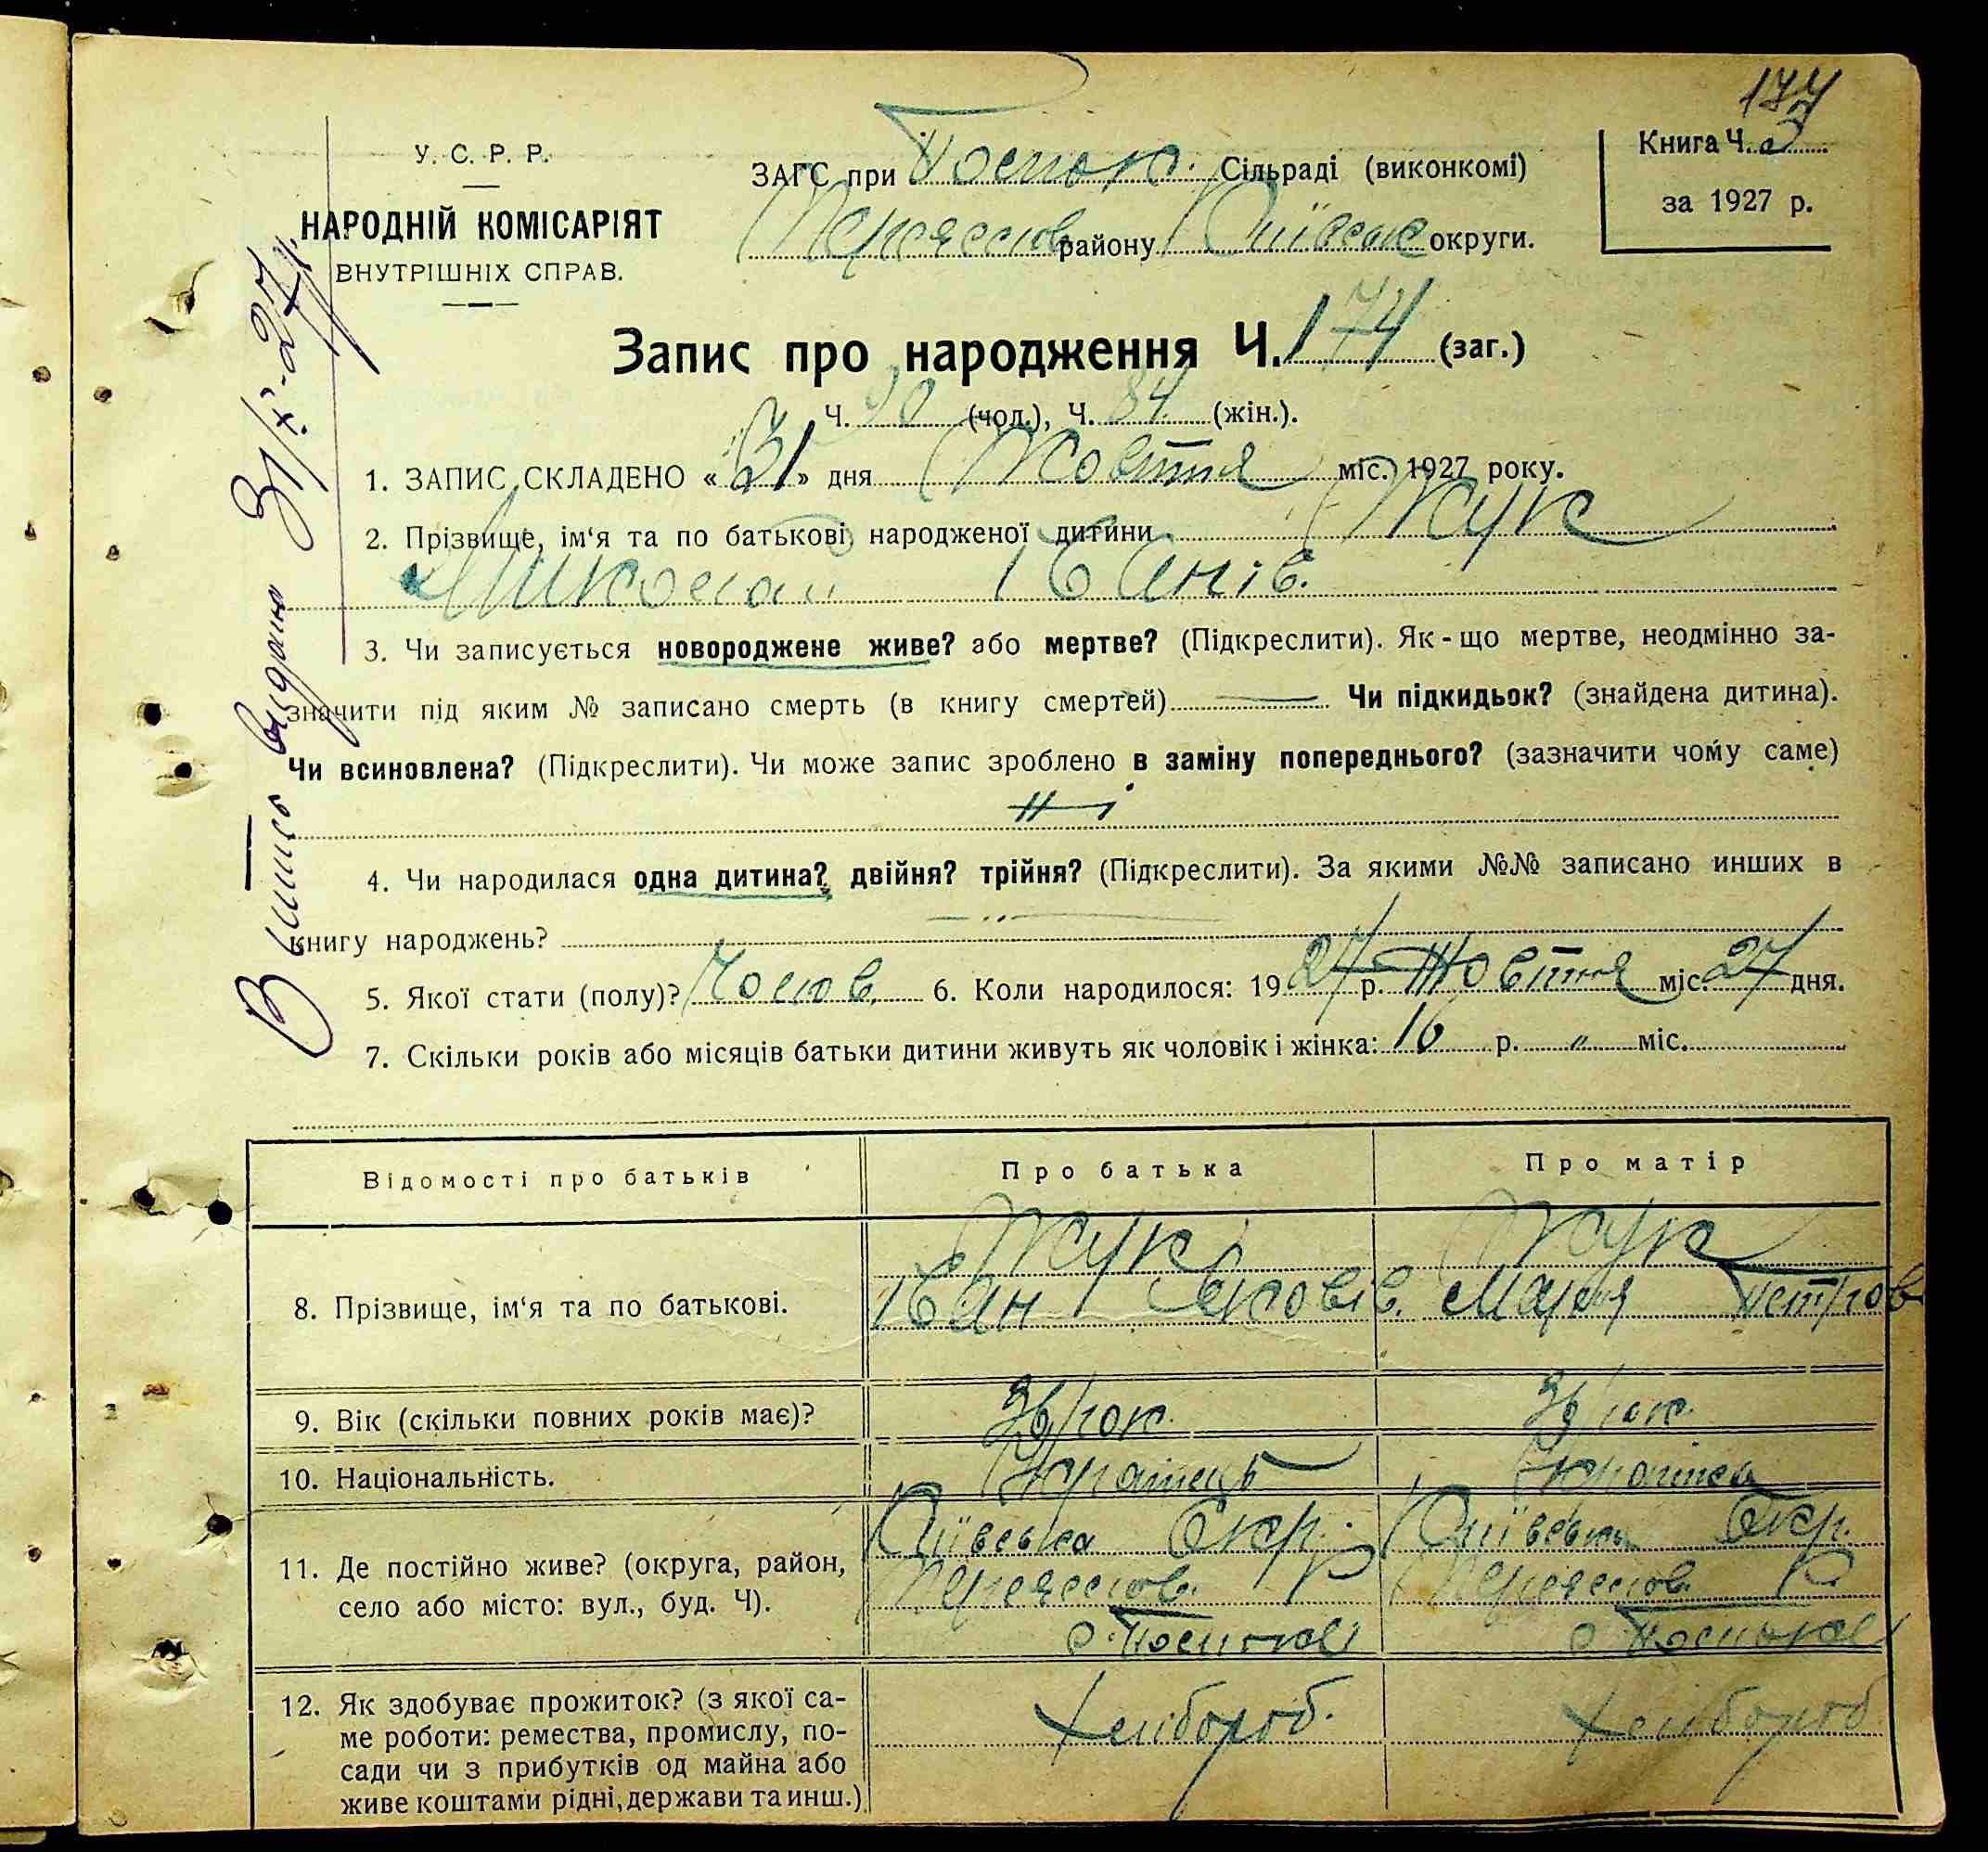 174
У. С. Р. Р.
НАРОДНІЙ КОМІСАРІЯТ
ВНУТРІШНІХ СПРАВ.
ЗАГС при Сільраді (виконкомі)
Переяслов району Київськ округи.
Книга Ч. 3
за 1927 р.
Запис про народження Ч. 174 (заг.)
Ч. 90 (чол.), Ч. 84 (жін.).
1. ЗАПИС СКЛАДЕНО « 31 » дня Жовтня міс. 1927 року.
2. Прізвище, ім‘я та по батькові народженої дитини Жук
Миколай Іванів.
3. Чи записується новороджене живе? або мертве? (Підкреслити). Як-що мертве, неодмінно за-
значити під яким № записано смерть (в книгу смертей) — Чи підкидьок? (знайдена дитина).
Чи всиновлена? (Підкреслити). Чи може запис зроблено в заміну попереднього? (зазначити чому саме)
4. Чи народилася одна дитина? двійня? трійня? (Підкреслити). За якими №№ записано инших в
книгу народжень?
5. Якої стати (полу)? Чолов. 6. Коли народилося: 1927 р. Жовтня міс. 27 дня.
7. Скільки років або місяців батьки дитини живуть як чоловік і жінка: 16 р. „ міс.
Випис видано 31/X-27 р.
Відомості про батьків Про батька Про матір
8. Прізвище, ім‘я та по батькові. Жук Іван Яковів. Жук Марія Петров
9. Вік (скільки повних років має)? 36 рок. 36 рок.
10. Національність. Українець Українка
11. Де постійно живе? (округа, район,
село або місто: вул., буд. Ч).
Київська Окр. Київська Окр.
Переяслов. Р Переяслов. Р
12. Як здобуває прожиток? (з якої са-
ме роботи: ремества, промислу, по-
сади чи з прибутків од майна або
живе коштами рідні, держави та инш.)
Хлібороб. Хлібороб